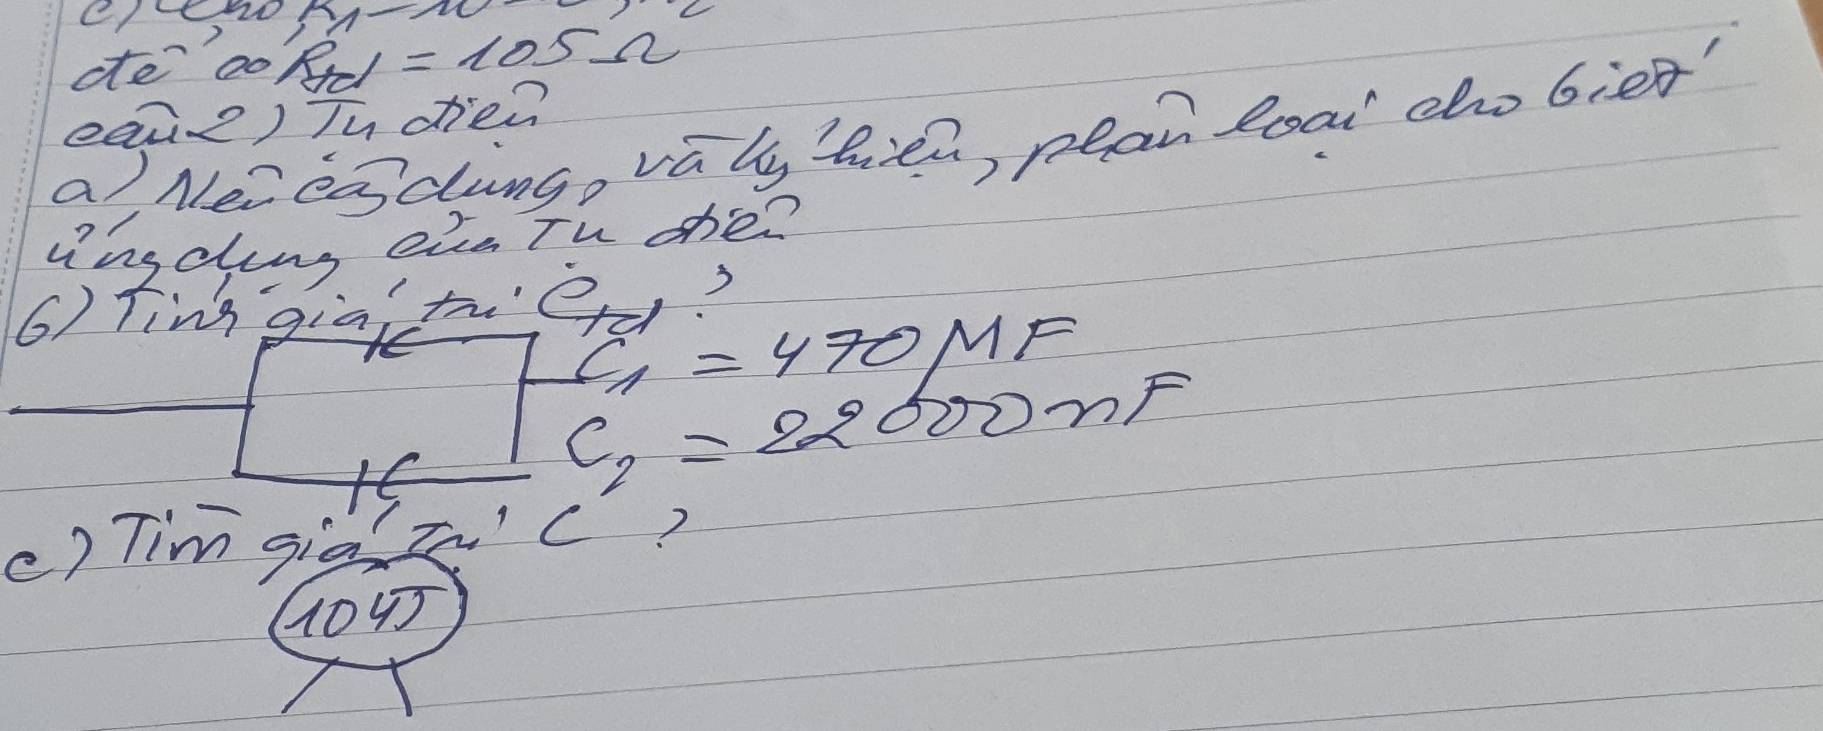 để có Rtđ = 105 Ω
câu 2) Tụ điện
a) Nêu cấu dung, và ký hiệu, phân loại cho biết
ứng dụng của Tụ điện
b) Tính giá trị Ctđ?
C1 = 470 MF
C2 = 22000nF
c) Tìm giá trị C ?
104J